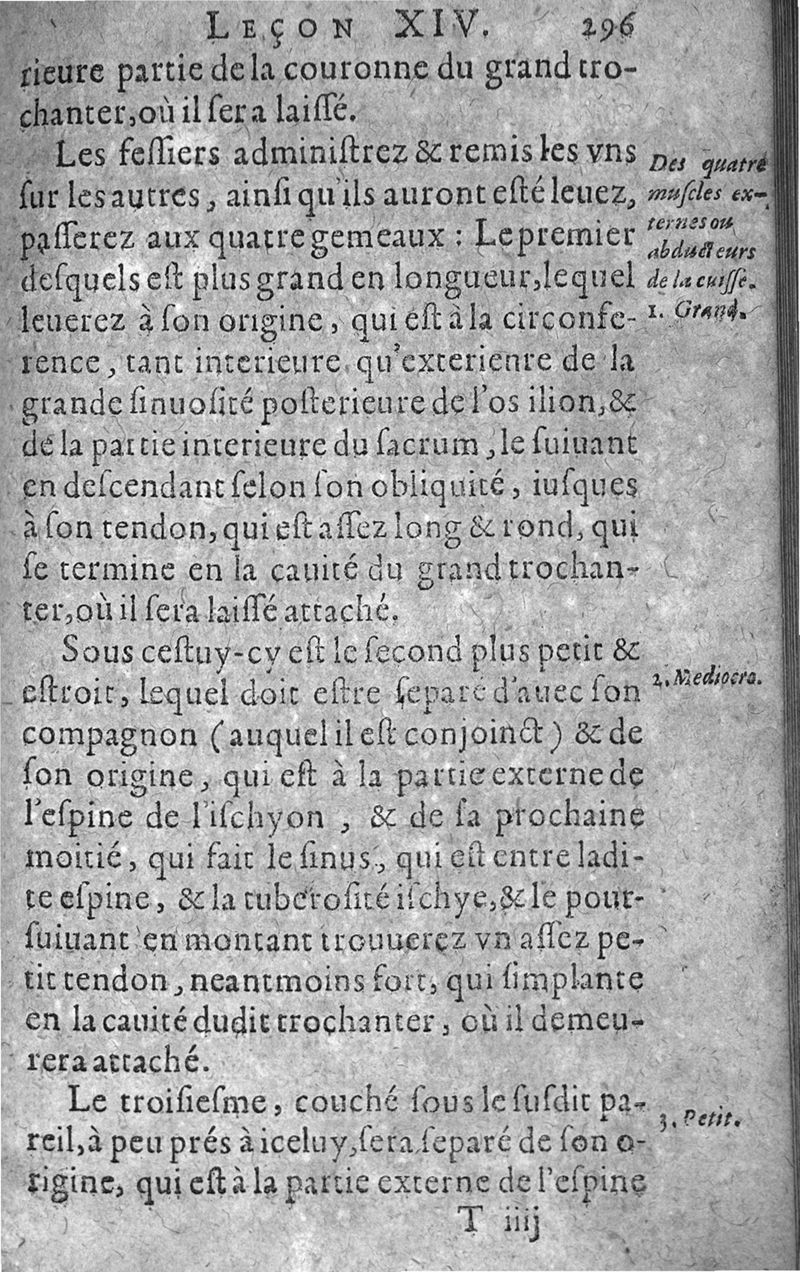 LEÇON XIV. 296
rieure partie de la couronne du grand tro-
chanter, où il ſera laiſſé.
Les feſſiers adminiſtrez & remis les vns
ſur les autres, ainſi qu'ils auront eſté leuez,
paſſerez aux quatre gemeaux : Le premier
deſquels eſt plus grand en longueur, lequel
leuerez à ſon origine, qui eſt à la circonfe-
rence, tant interieure qu'exterienre de la
grande ſinuoſité poſterieure de l'os ilion, &
de la partie interieure du ſacrum, le ſuiuant
en deſcendant ſelon ſon obliquité, iuſques
à ſon tendon, qui eſt aſſez long & rond, qui
ſe termine en la cauité du grand trochan-
ter, où il ſera laiſſé attaché.
Sous ceſtuy-cy eſt le ſecond plus petit &
eſtroit, lequel doit eſtre ſeparé d'auec ſon
compagnon (auquel il eſt conjoinct) & de
ſon origine, qui eſt à la partie externe de
l'eſpine de l'iſchyon, & de ſa prochaine
moitié, qui fait le ſinus, qui eſt entre ladi-
te eſpine, & la tuberoſité iſchye, & le pour-
ſuiuant en montant trouuerez vn aſſez pe-
tit tendon, neantmoins fort, qui ſimplante
en la cauité dudit trochanter, où il demeu-
rera attaché.
Le troiſieſme, couché ſous le ſuſdit pa-
reil, à peu prés à iceluy, ſera ſeparé de ſon o-
rigine, qui eſt à la partie externe de l'eſpine
T iiij
Des quatre
muſcles ex-
ternes ou
abducteurs
de la cuiſſe.
1. Grand.
2. Mediocre.
3. Petit.